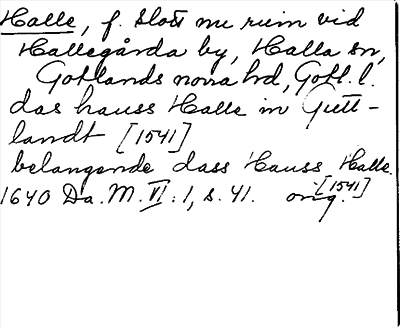 Halle, f. slott nu ruin vid
Hallegårda by, Halla sn,
Gotlands norra hd, Gotl. l.
das hauss Halle in Gutt-
landt [1541]
belangende dass Hauss Halle.
1640 Da. M. VI: 1, s. 41. orig. [1541]